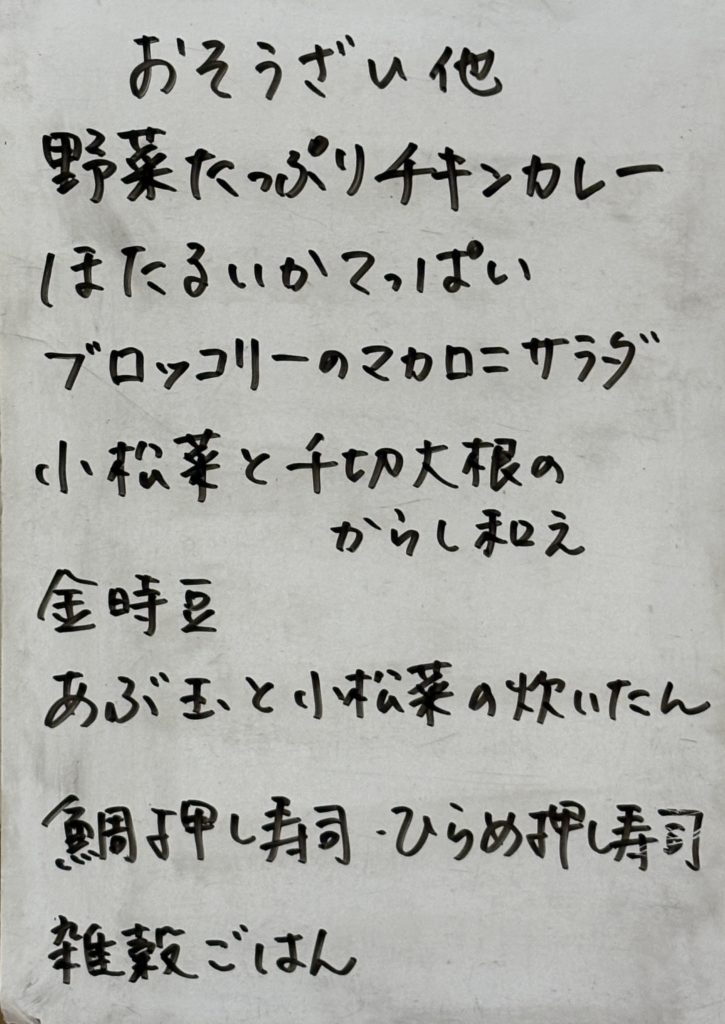 おそうざい他
野菜たっぷりチキンカレー
ほたるいかてっぱい
ブロッコリーのマカロニサラダ
小松菜と千切大根の
からし和え
金時豆
あぶ玉と小松菜の炊いたん
鯛押し寿司・ひらめ押し寿司
雑穀ごはん